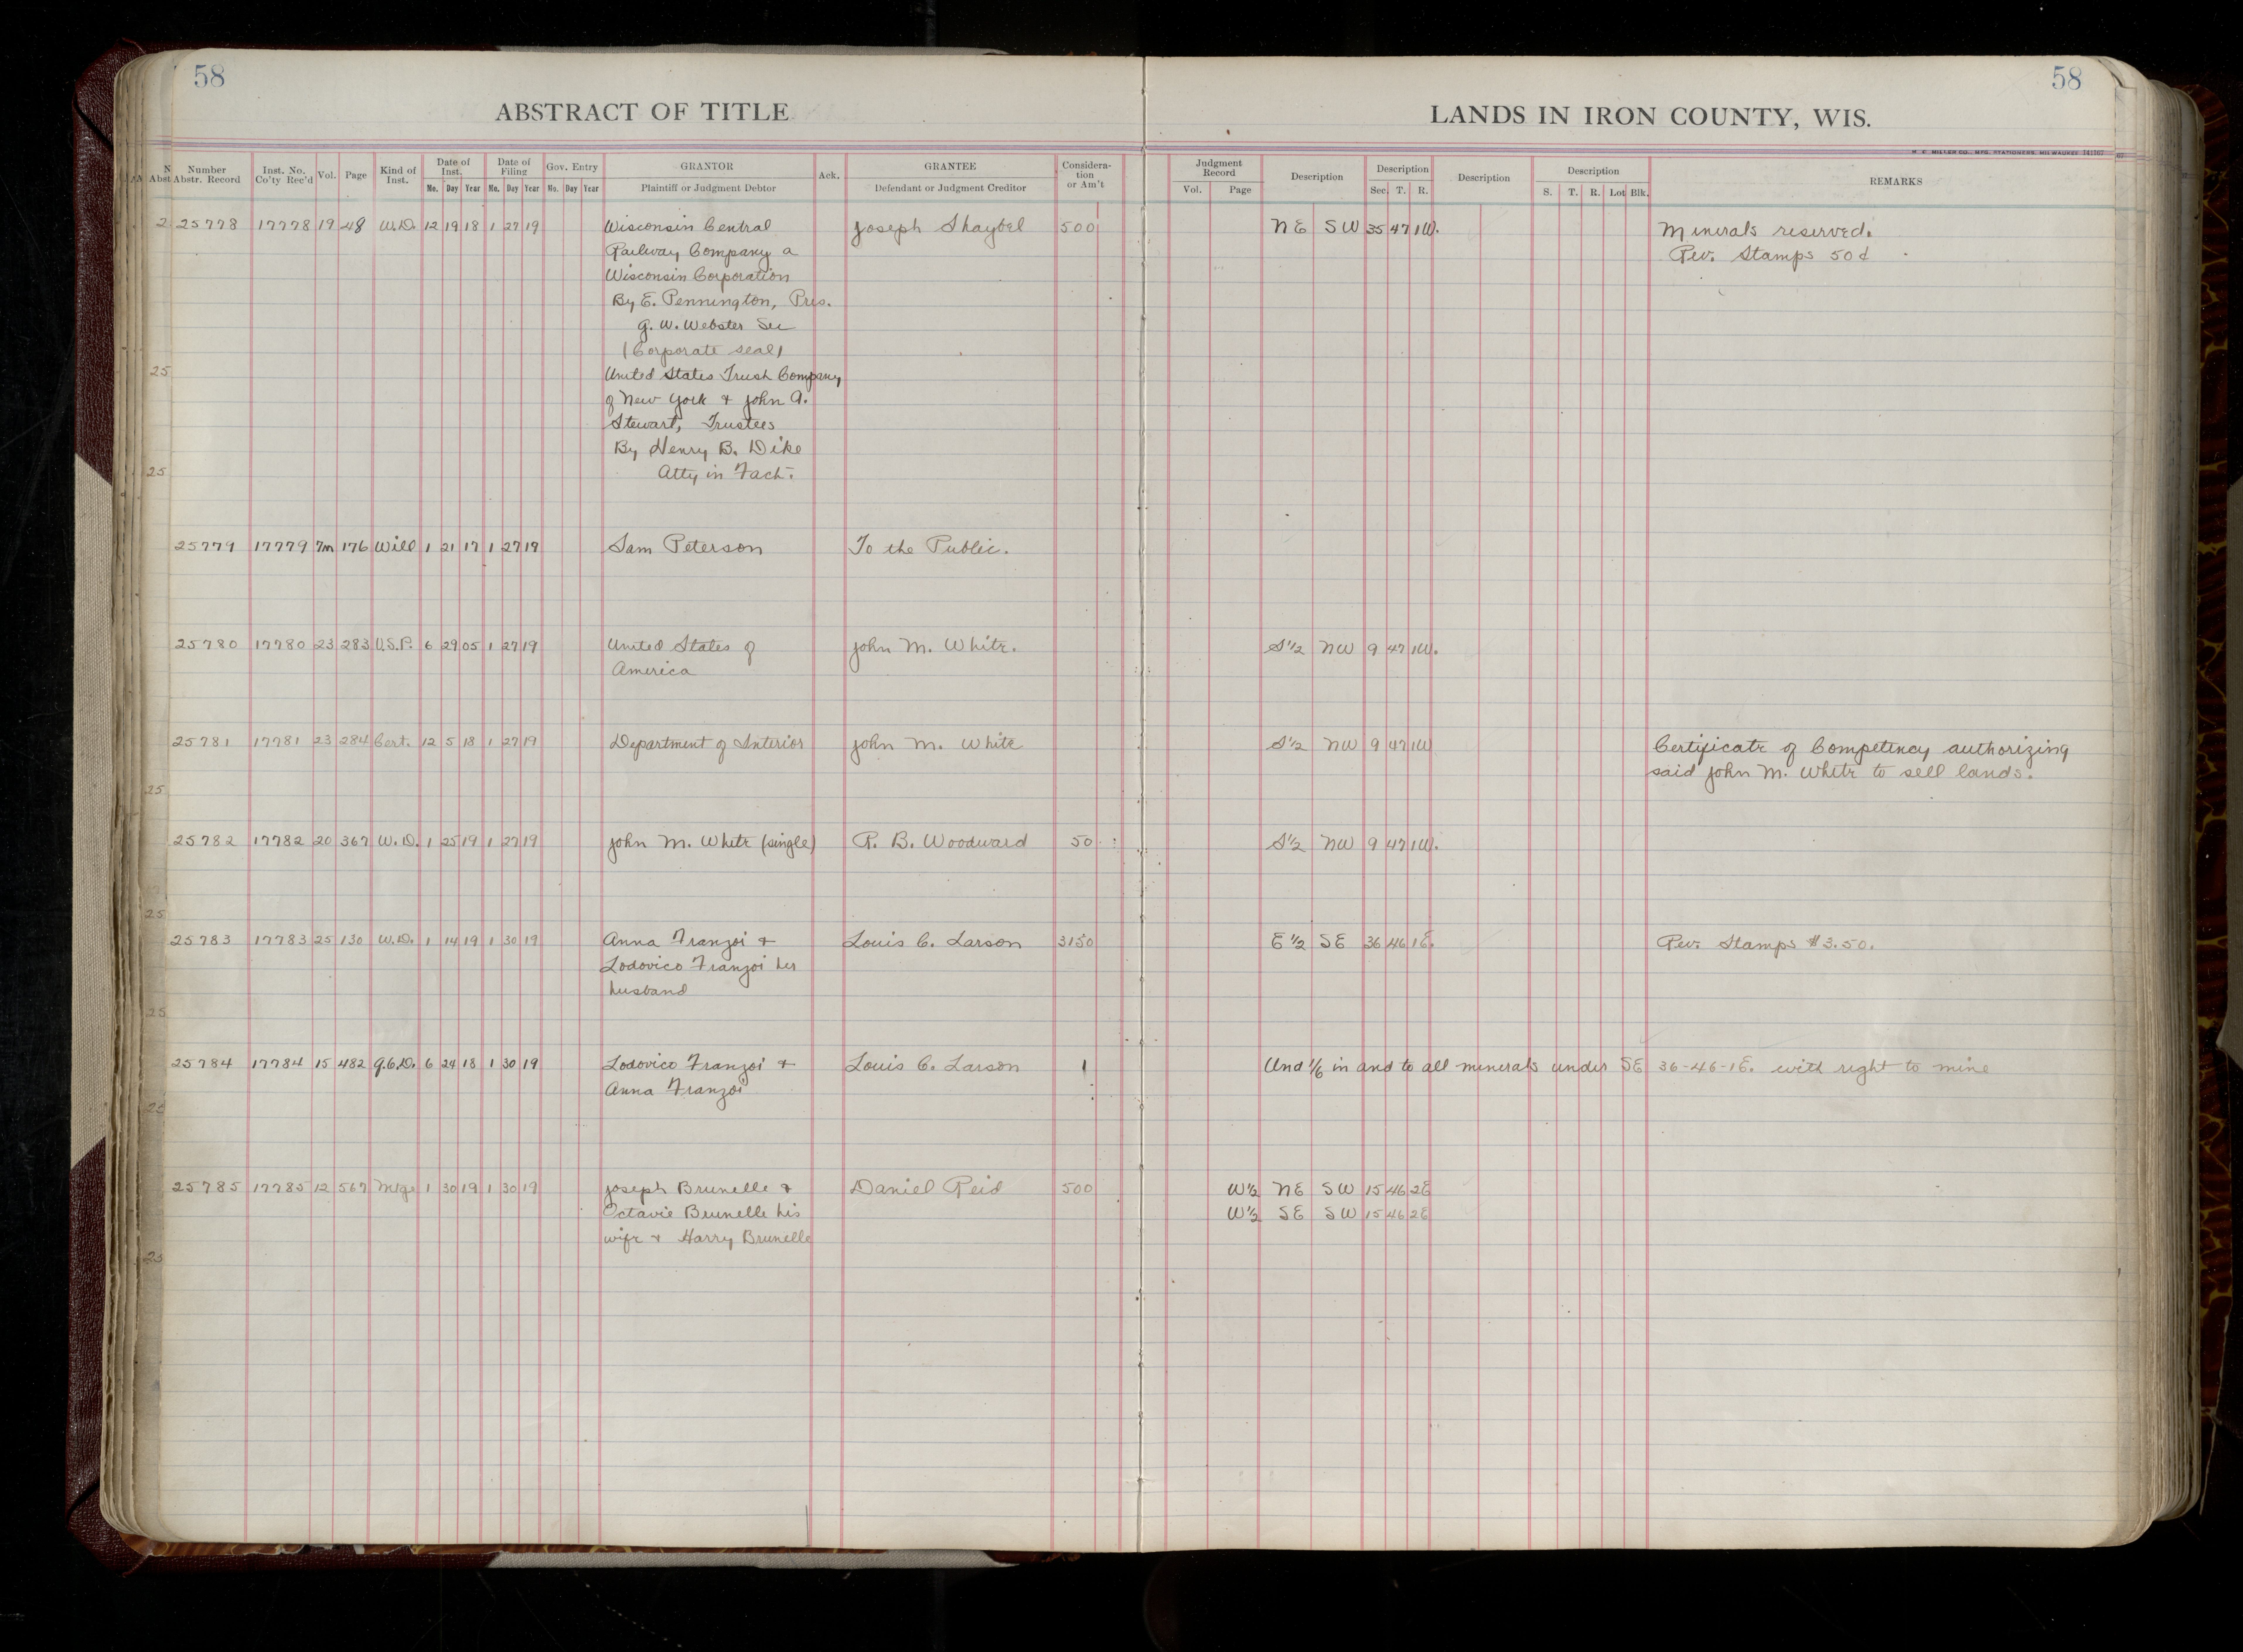 58
58
ABSTRACT OF TITLE
LANDS IN IRON COUNTY, WIS.
Number Abstr. Record | Inst. No. Co'ty Rec'd | Vol. | Page | Kind of Inst. | Date of Inst. Mo. Day Year | Date of Filing Mo. Day Year | Gov. Entry Mo. Day Year | GRANTOR Plaintiff or Judgment Debtor | Ack. | GRANTEE Defendant or Judgment Creditor | Considera-tion or Am't | Judgment Record Vol. Page | Description | Description Sec. T. R. | Description | Description S. T. R. Lot Blk. | REMARKS
25778 17778 19 48 W.D. 12 19 18 1 27 19 Wisconsin Central Joseph Shaybel 500 NE SW 35 47 1W. Minerals reserved.
Railway Company a Rev. Stamps 50¢
Wisconsin Corporation
By E. Pennington, Pres.
G. W. Webster Sec
(Corporate seal)
United States Trust Company
of New York & John A.
Stewart, Trustees
By Henry B. Dike
Atty in Fact.
25779 17779 7m 176 Will 1 21 17 1 27 19 Sam Peterson To the Public.
25780 17780 23 283 U.S.P. 6 29 05 1 27 19 United States of John M. White. S½ NW 9 47 1W.
America
25781 17781 23 284 Cert. 12 5 18 1 27 19 Department of Interior John M. White S½ NW 9 47 1W Certificate of Competency authorizing
said John M. White to sell lands.
25782 17782 20 367 W.D. 1 25 19 1 27 19 John M. White (single) R. B. Woodward 50 S½ NW 9 47 1W.
25783 17783 25 130 W.D. 1 14 19 1 30 19 Anna Franzoi & Louis C. Larson 3150 E½ SE 36 46 1E. Rev. Stamps $3.50.
Lodovico Franzoi her
husband
25784 17784 15 482 Q.C.D. 6 24 18 1 30 19 Lodovico Franzoi & Louis C. Larson 1 Und 1/6 in and to all minerals under SE 36-46-1E. with right to mine
Anna Franzoi
25785 17785 12 567 Mtge 1 30 19 1 30 19 Joseph Brunelle & Daniel Reid 500 W½ NE SW 15 46 2E
Octavie Brunelle his W½ SE SW 15 46 2E
wife & Harry Brunelle